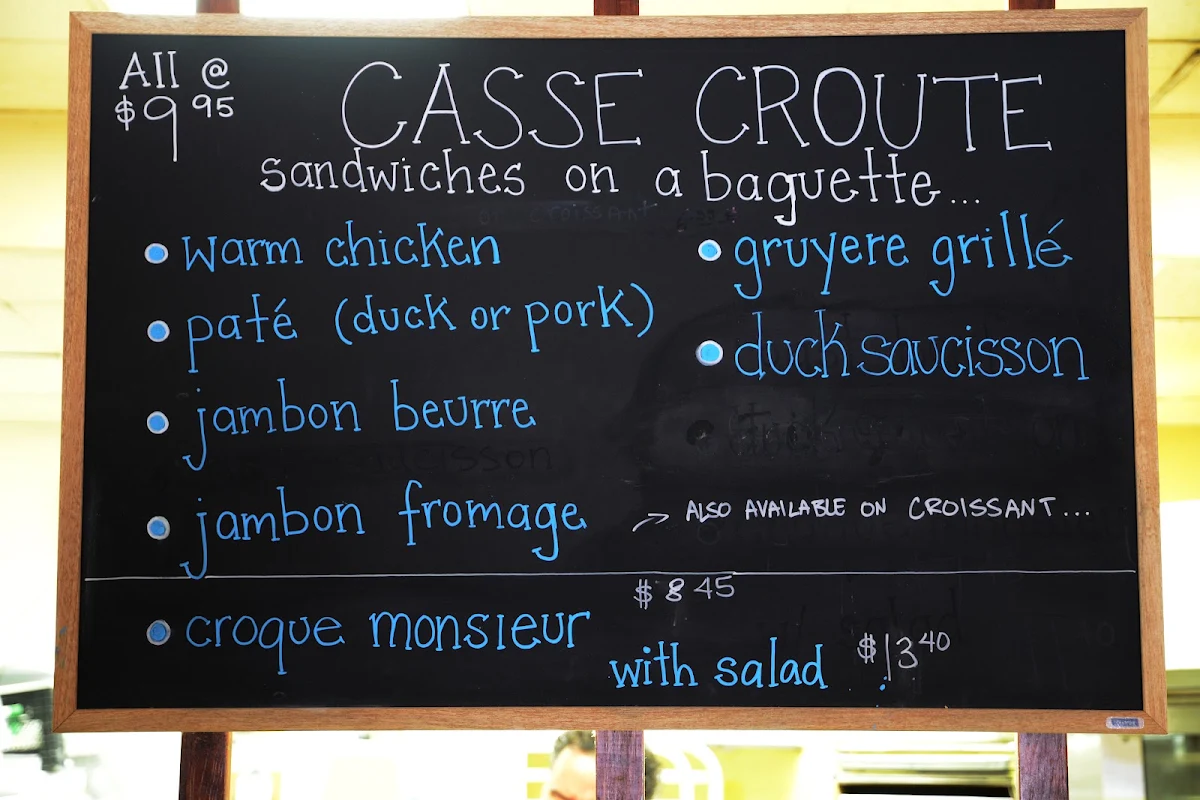 All @
$9 95
CASSE CROUTE
sandwiches on a baguette...
warm chicken
paté (duck or pork)
jambon beurre
jambon fromage
gruyere grillé
duck saucisson
ALSO AVAILABLE ON CROISSANT...
croque monsieur
$8 45
with salad $13 40